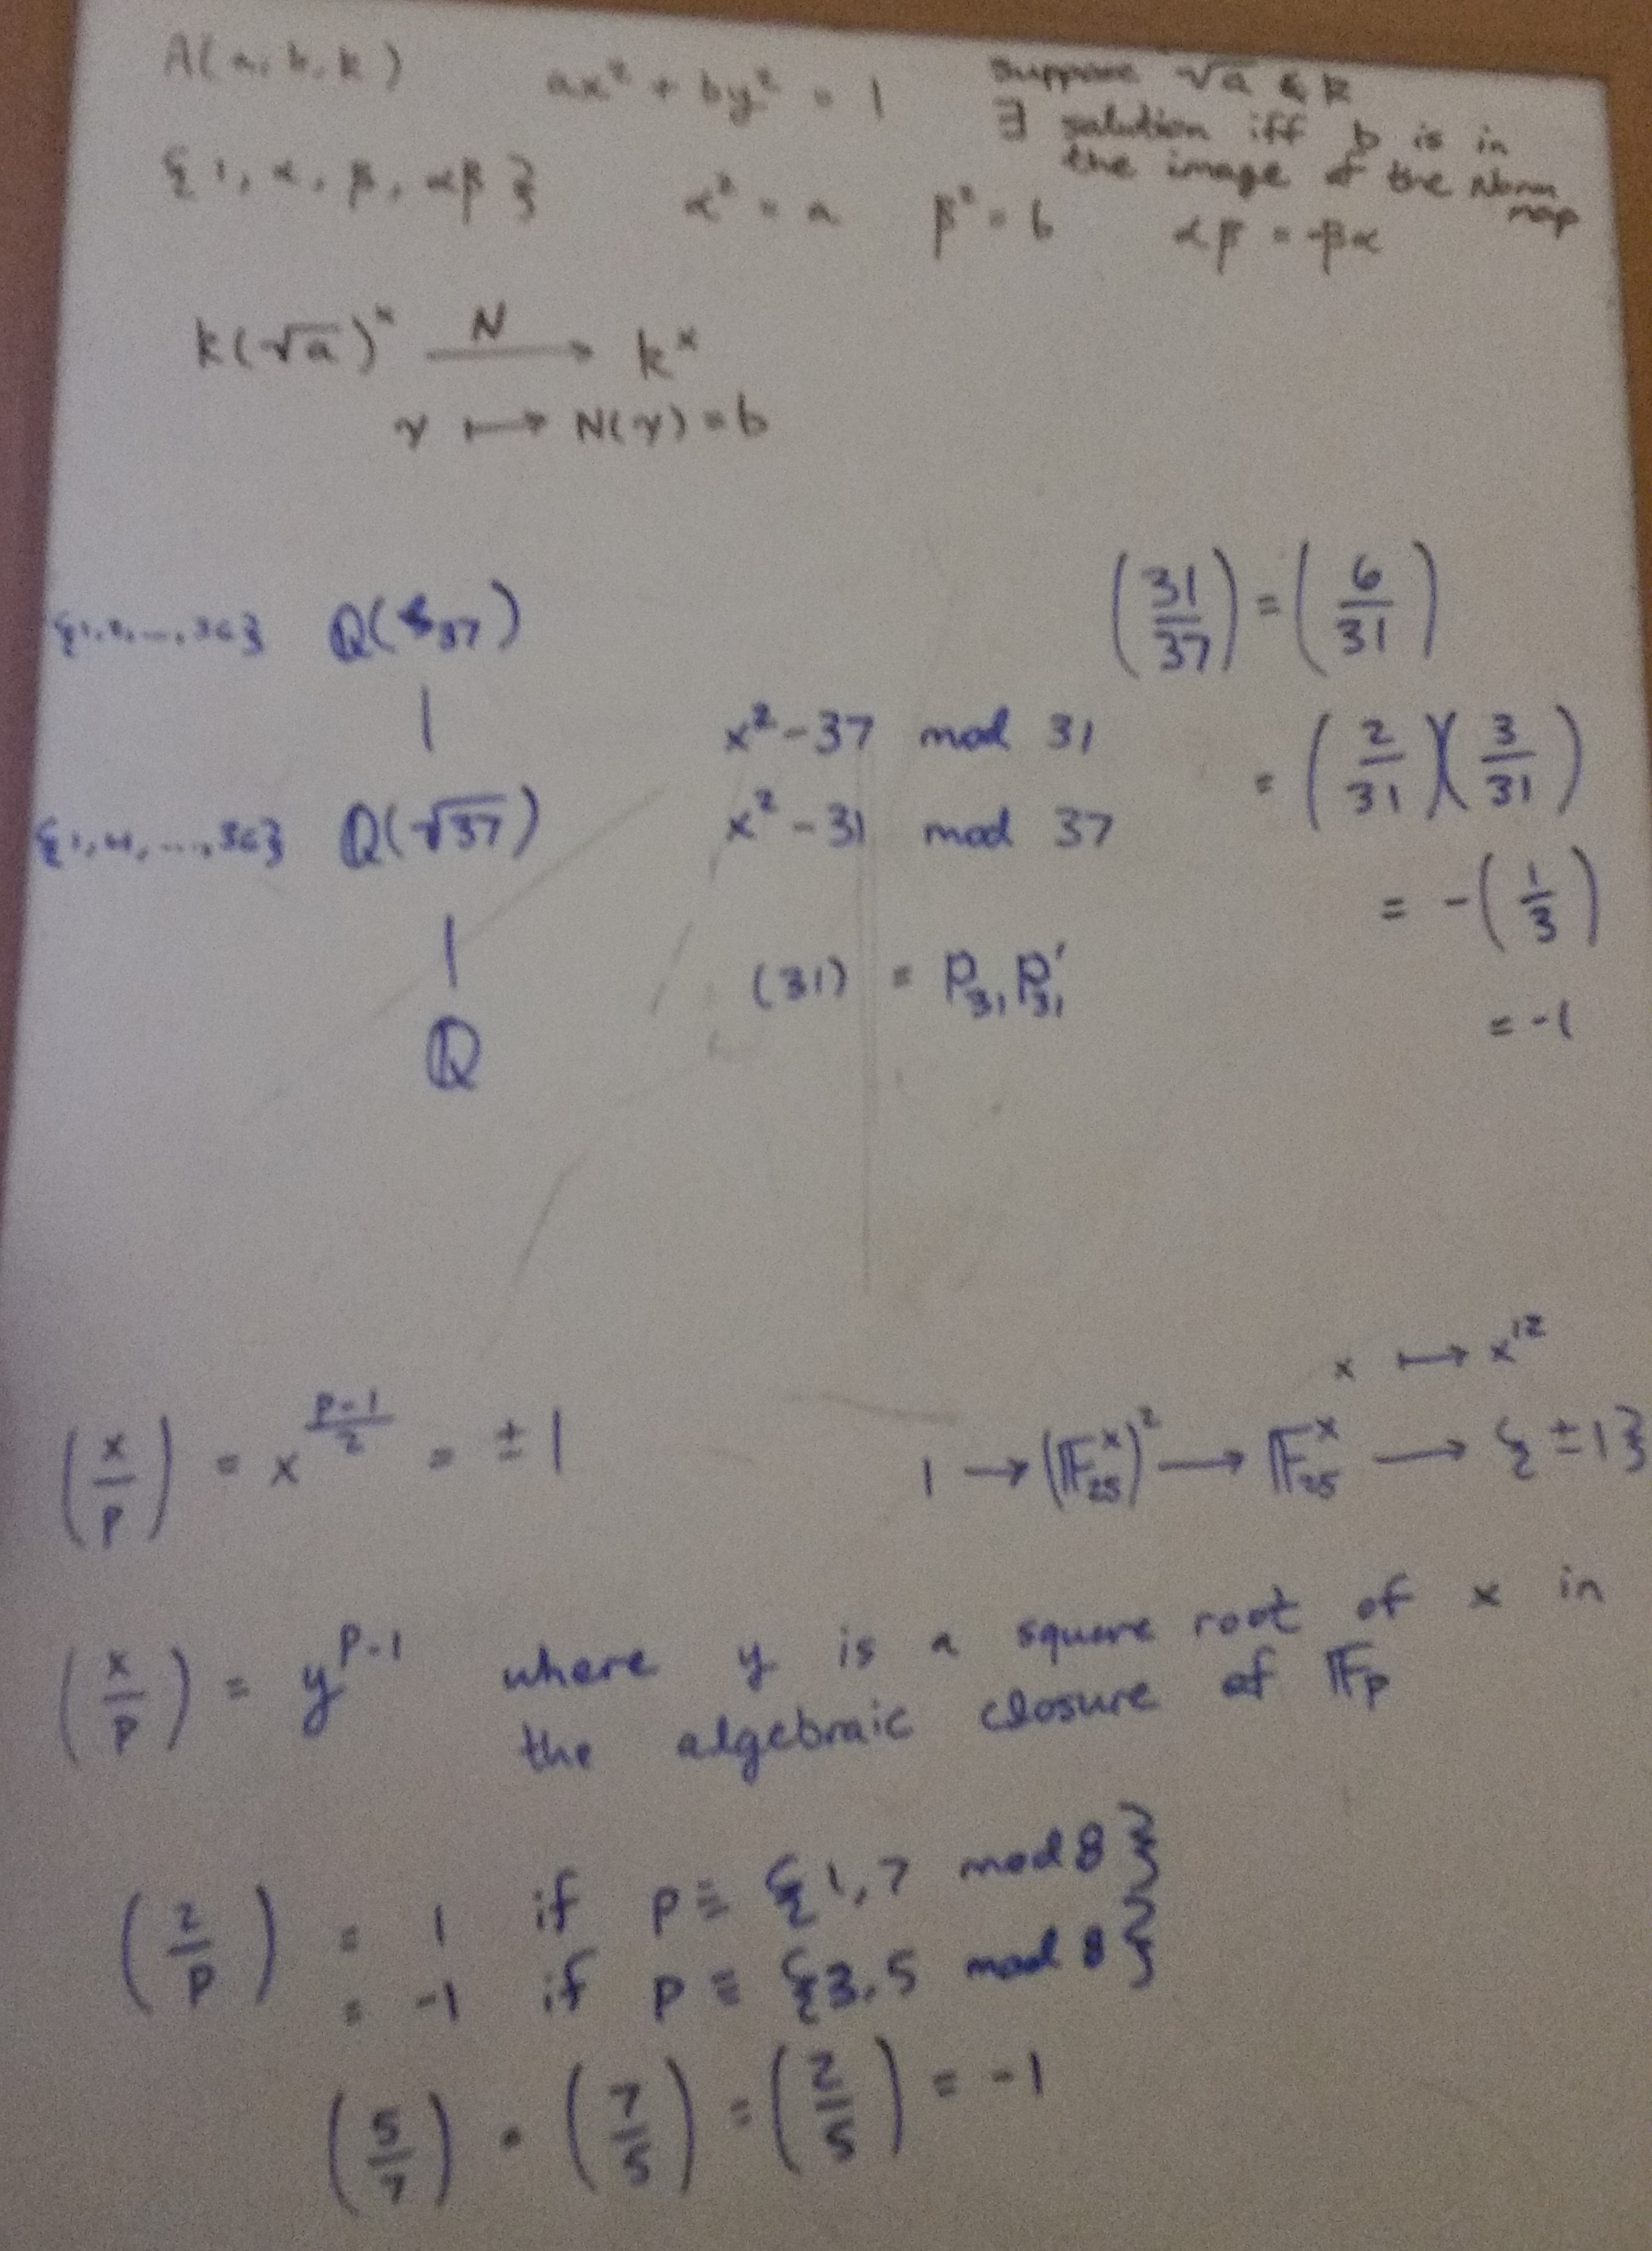 A(a, b, k) ax² + by² = 1 Suppose √a ∉ k
∃ solution iff b is in
the image of the Norm
map
{1, α, β, αβ} α² = a β² = b αβ = -βα
k(√a)ˣ —N→ kˣ
γ ↦ N(γ) = b
(31/37) = (6/31)
{1, 2, ..., 36} Q(ζ₃₇)
|
x² - 37 mod 31
= (2/31)(3/31)
{1, 4, ..., 36} Q(√37) x² - 31 mod 37
= -(1/3)
|
(31) = P₃₁ P₃₁'
= -1
ℚ
x ↦ x¹²
(x/p) = x^((p-1)/2) = ±1 1 → (𝔽₂₅ˣ)² → 𝔽₂₅ˣ → {±1}
(x/p) = y^(p-1) where y is a square root of x in
the algebraic closure of 𝔽p
(2/p) = 1 if p ≡ {1, 7 mod 8}
= -1 if p ≡ {3, 5 mod 8}
(5/7) = (7/5) = (2/5) = -1